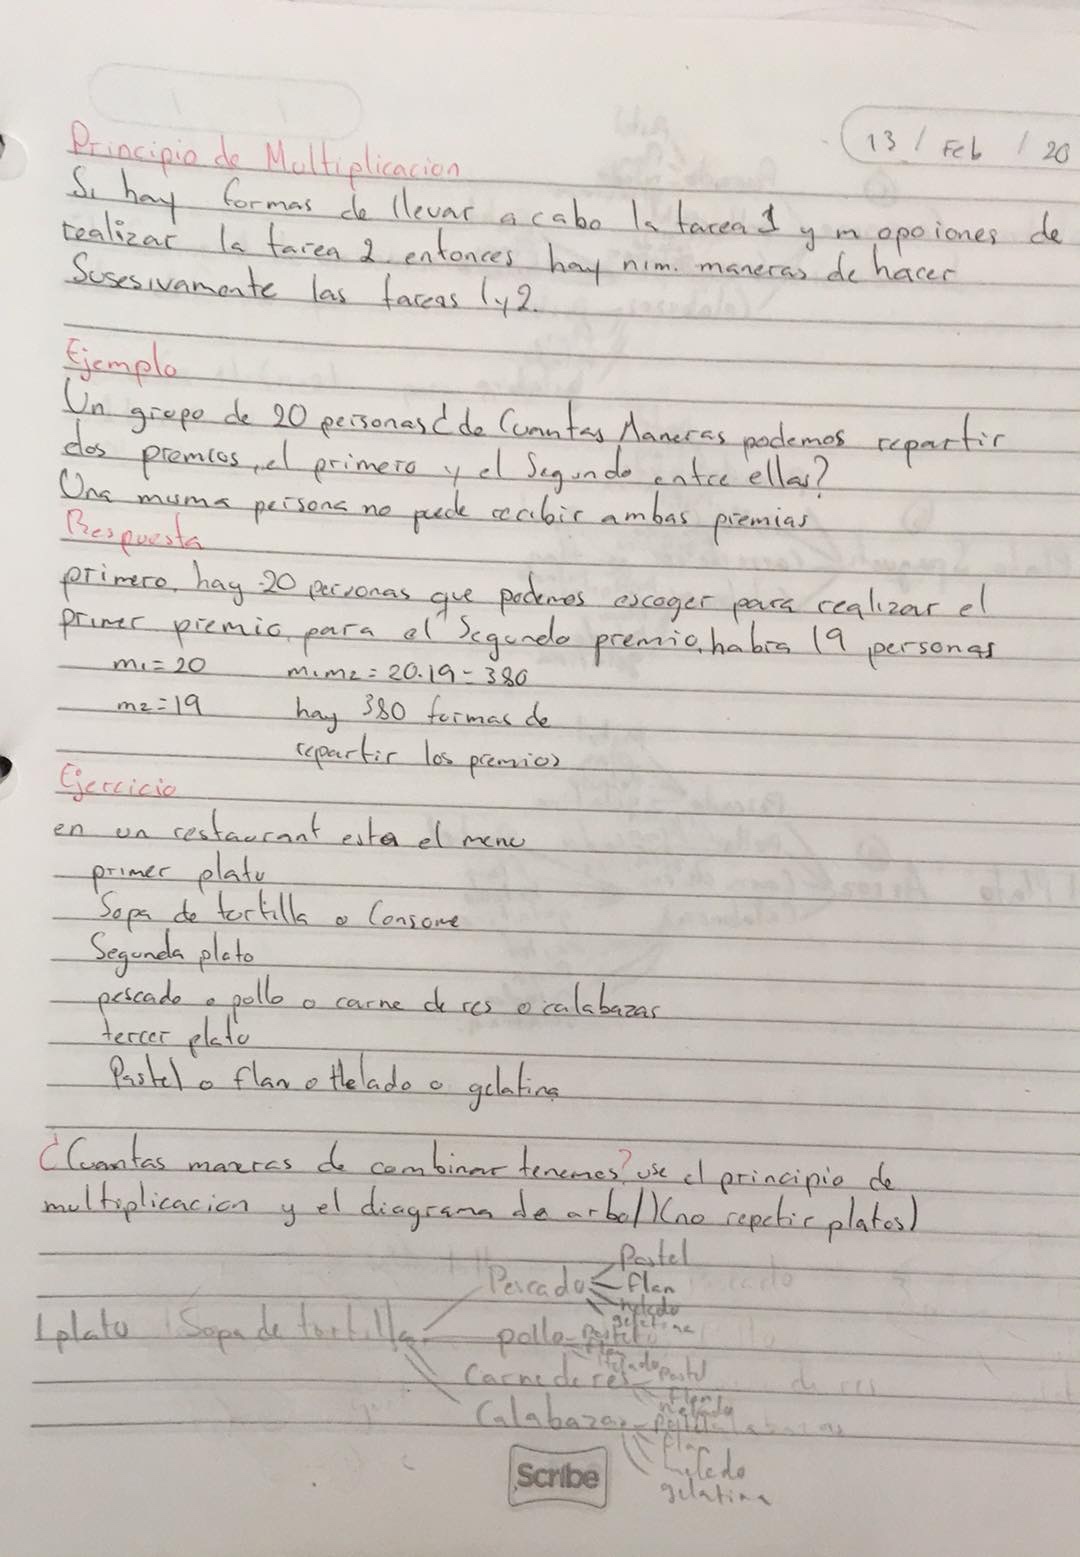 13 / Feb / 20
Principio de Multiplicacion
Si hay formas de llevar a cabo la tarea 1 y m opoiones de
realizar la tarea 2. entonces hay n.m. maneras de hacer
Susesivamente las tareas 1 y 2.
Ejemplo
Un grupo de 20 personas ¿de Cuantas Maneras podemos repartir
dos premios, el primero y el Segundo entre ellas?
Una misma persona no puede recibir ambas premias
Respuesta
primero, hay 20 personas que podemos escoger para realizar el
primer premio, para el Segundo premio, habia 19 personas
m1 = 20 m1m2 = 20.19 = 380
m2 = 19 hay 380 formas de
repartir los premios
Ejercicio
en un restaurant esta el menu
primer plato
Sopa de tortilla o Consome
Segundo plato
pescado o pollo o carne de res o calabazas
tercer plato
Pastel o flan o Helado o gelatina
¿Cuantas maneras de combinar tenemos? use el principio de
multiplicacion y el diagrama de arbol) (no repetir platos)
Pastel
Pescado flan
helado
gelatina
1 plato Sopa de tortilla
pollo
Helado
Carne de res Pastel
flan
Helado
Calabazas
flan
helado
gelatina
Scribe